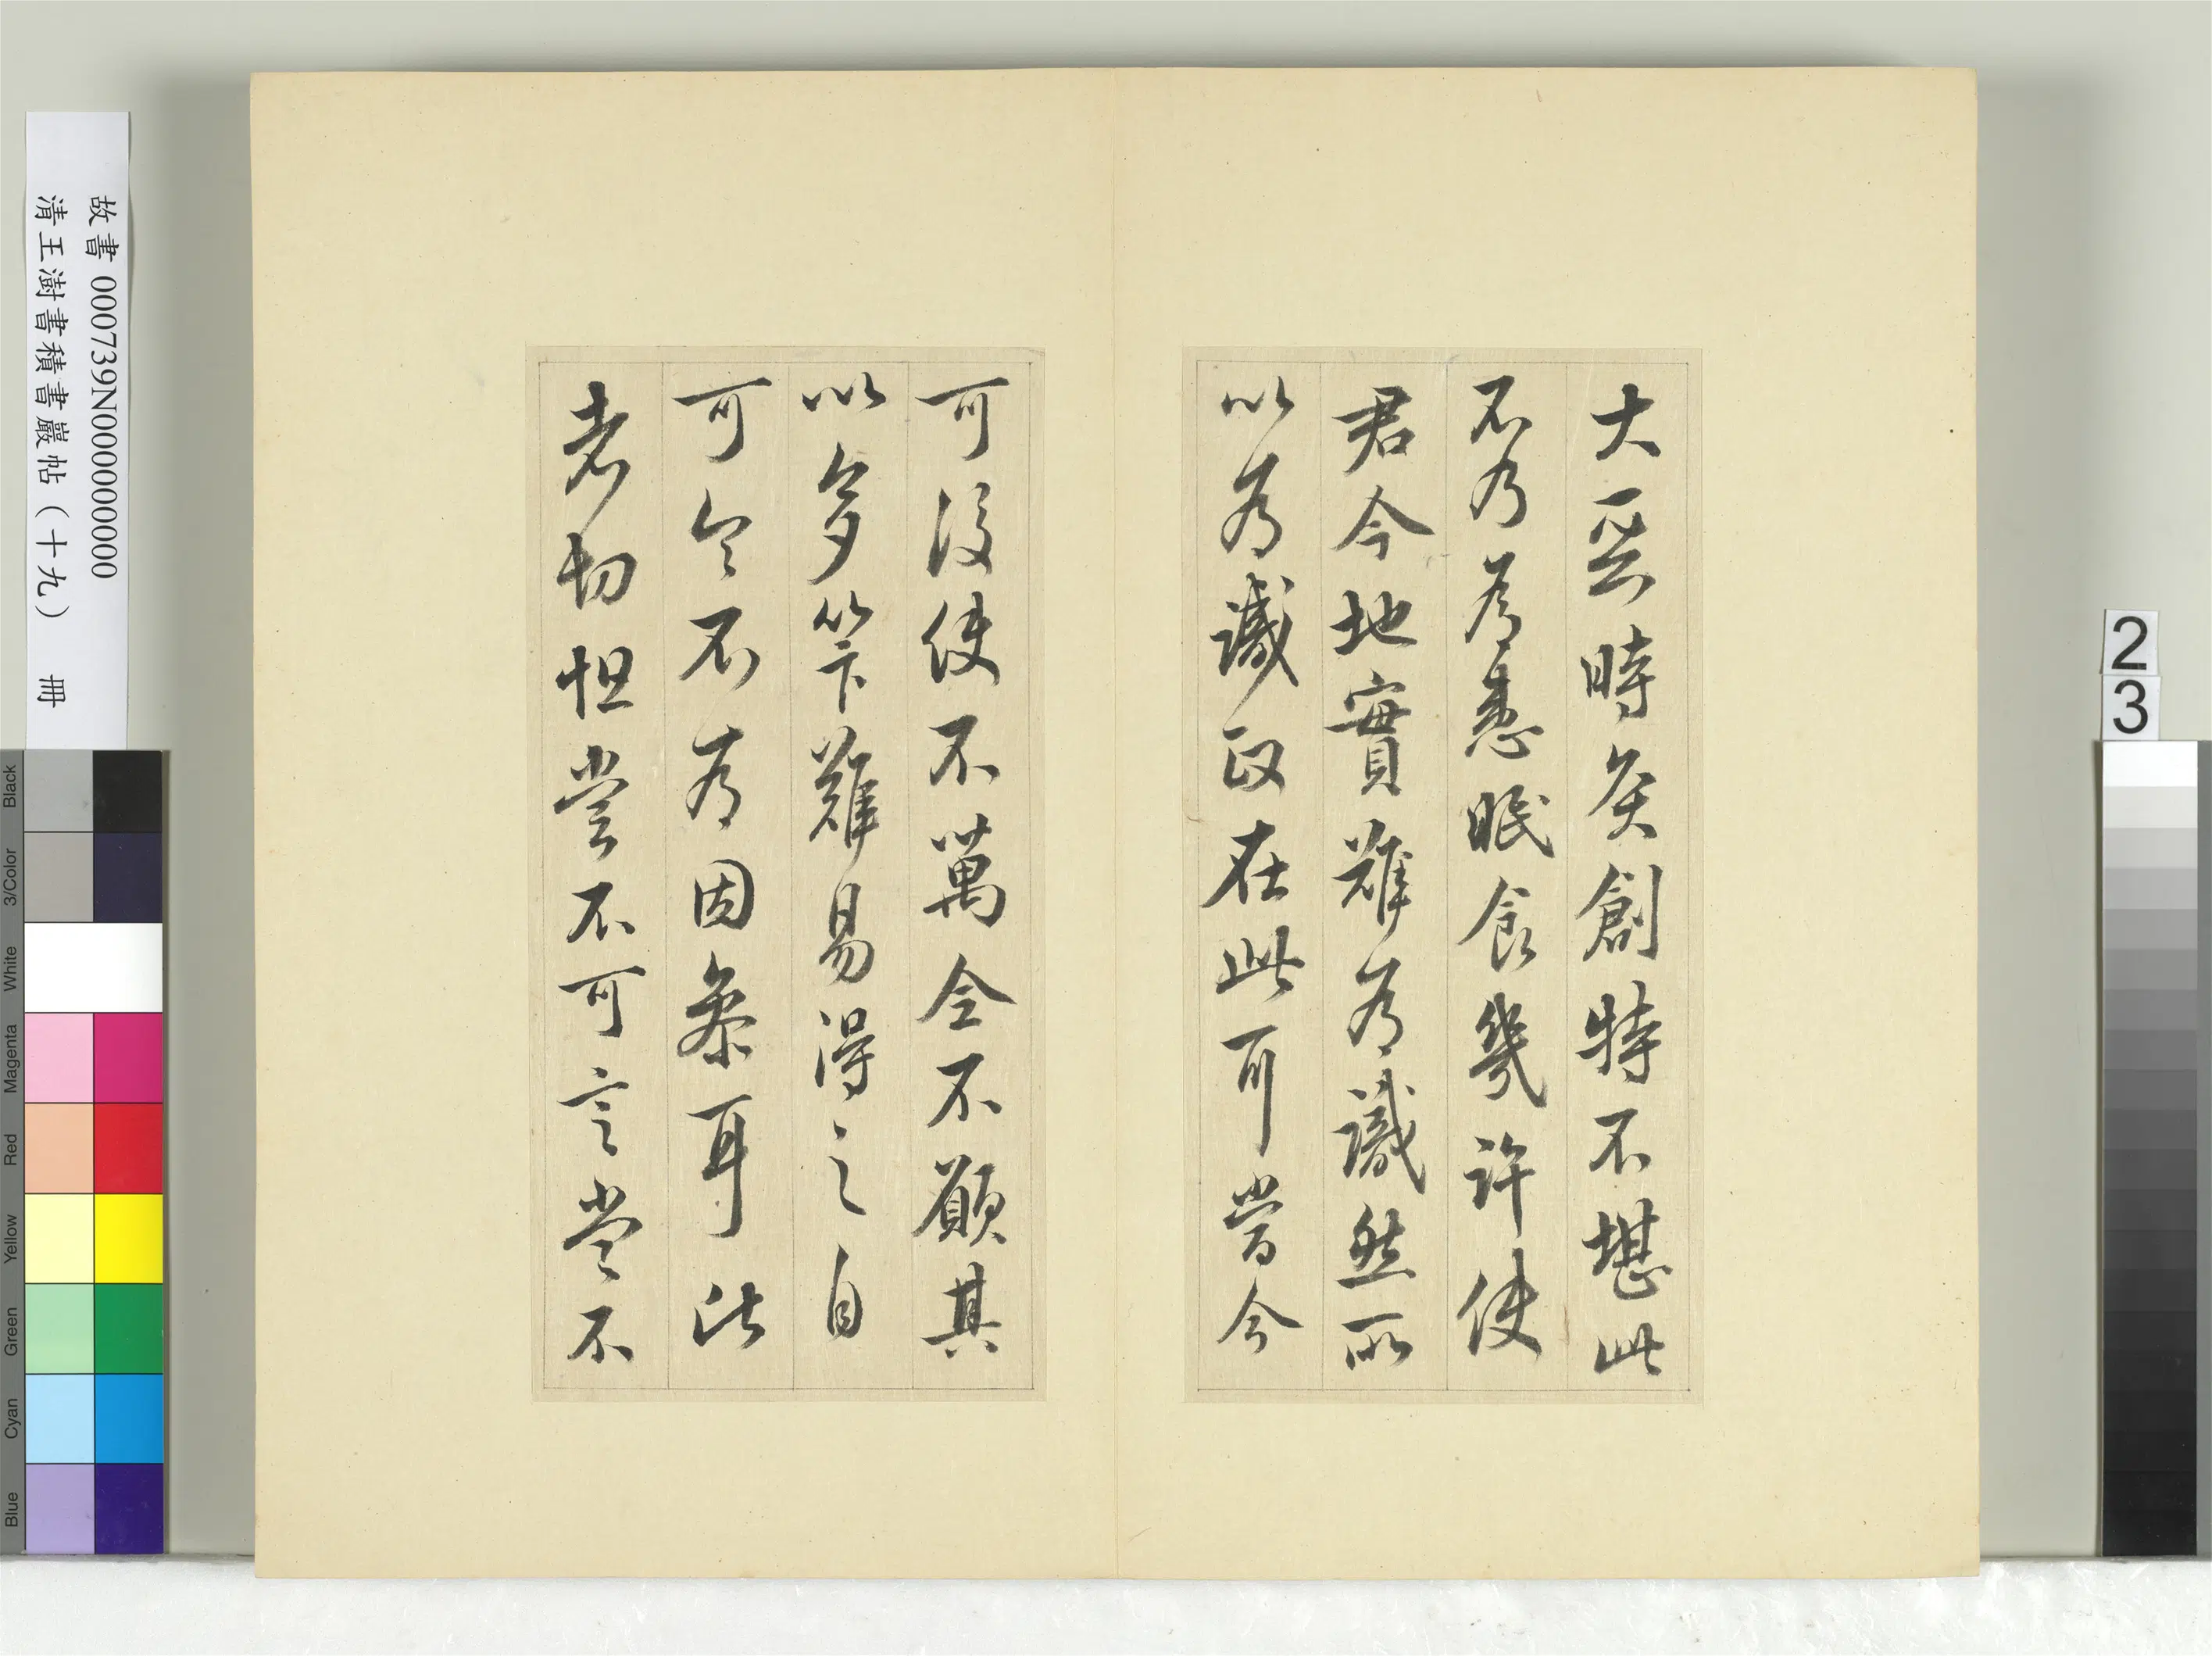 大惡時灸創特不堪此
不乃為患眠食幾許使
君今地實難為識然所
以為識政在此耳當今
可復使不萬全不顧其
以多算難易得之自
可令不為因㕘耳比
者切怛當不可言當不
故書 000739N000000000
清王澍書積書巖帖（十九） 冊
23
Black
3/Color
White
Magenta
Red
Yellow
Green
Cyan
Blue